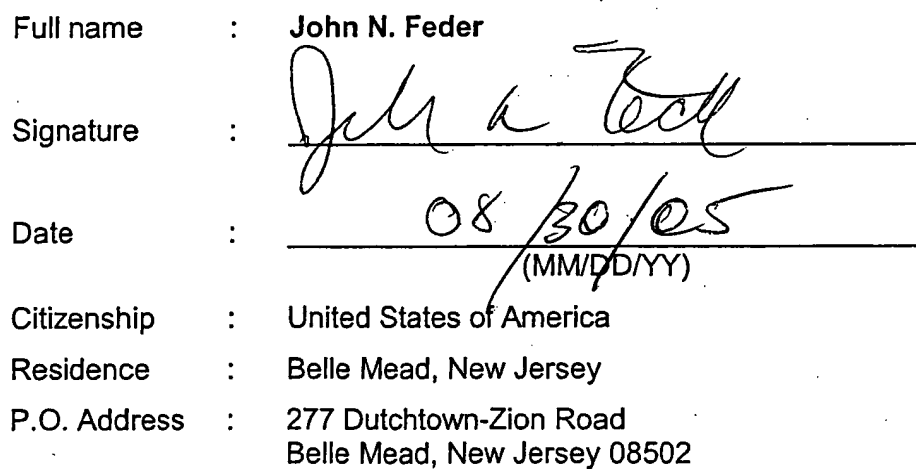 Full name : John N. Feder
Signature : John N Feder
Date : 08/30/05
(MM/DD/YY)
Citizenship : United States of America
Residence : Belle Mead, New Jersey
P.O. Address : 277 Dutchtown-Zion Road
Belle Mead, New Jersey 08502